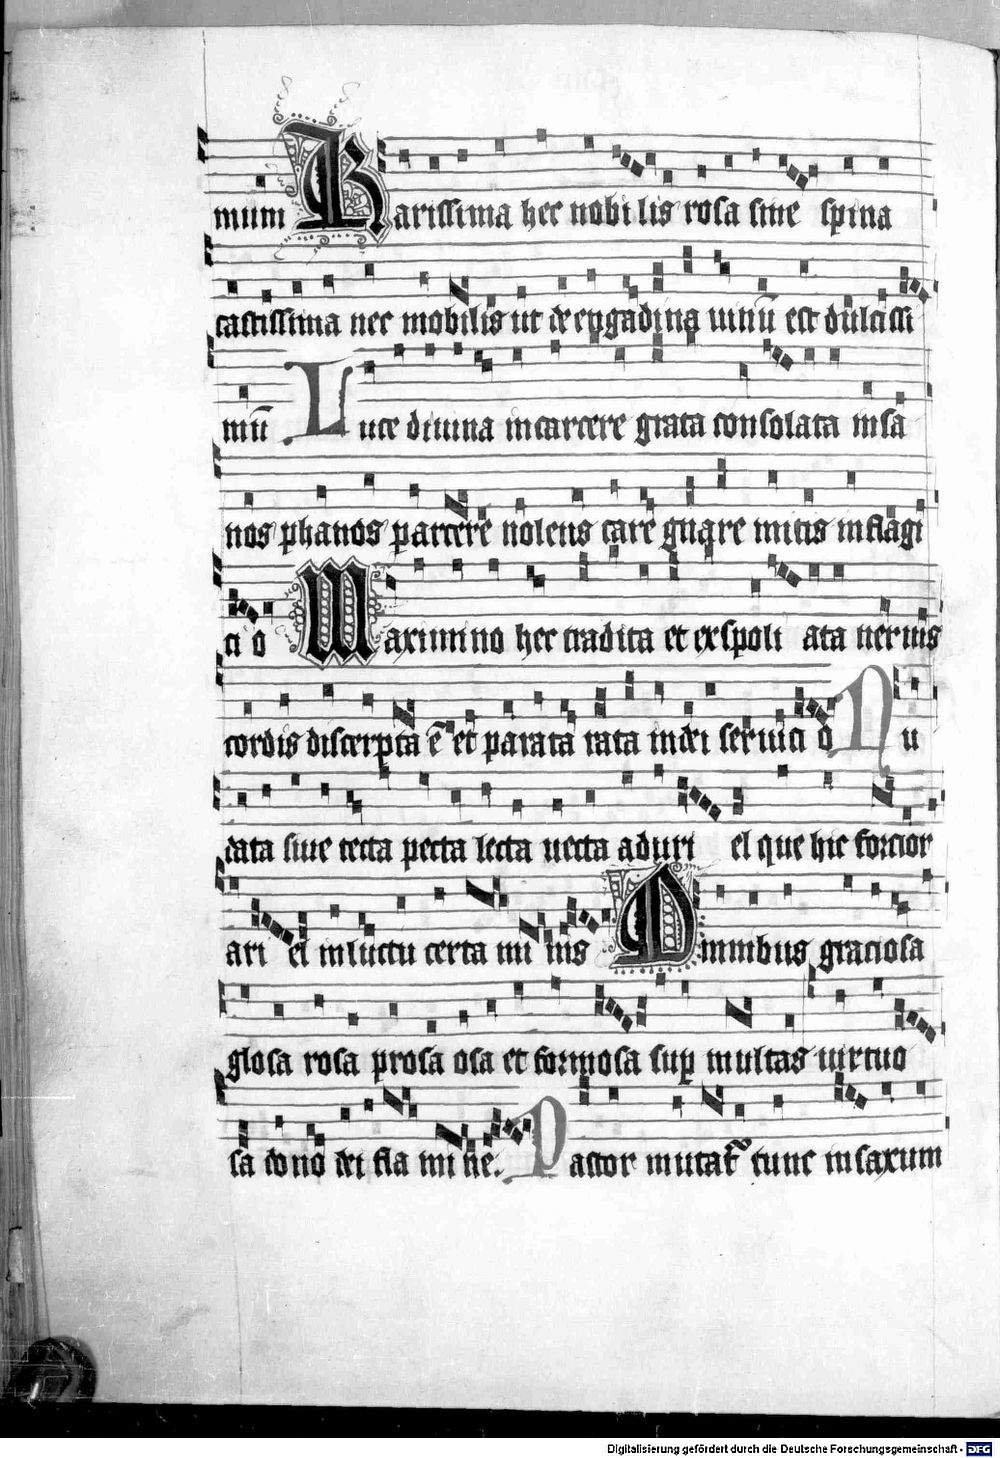 mum Karissima hec nobilis rosa sine spina
castissima nec mobilis ut de engadina uinū est dulcissi
mū Luce diuina in carcere grata consolata insa
nos phanos parcere nolens care gnare mitis inflagi
cio Maximino hec tradita et exspoli ata neruis
cordis discerpta ē et parata rata in dei seruicio Nu
data siue tecta pecta lecta uecta ad uri el que hic forcior
ari el in luctu certa mi nis Dminibus graciosa
glosa rosa prosa osa et formosa sup multas uirtuo
sa dono dei fla mi ne. Pastor mutat tunc in saxum
Digitalisierung gefördert durch die Deutsche Forschungsgemeinschaft - DFG